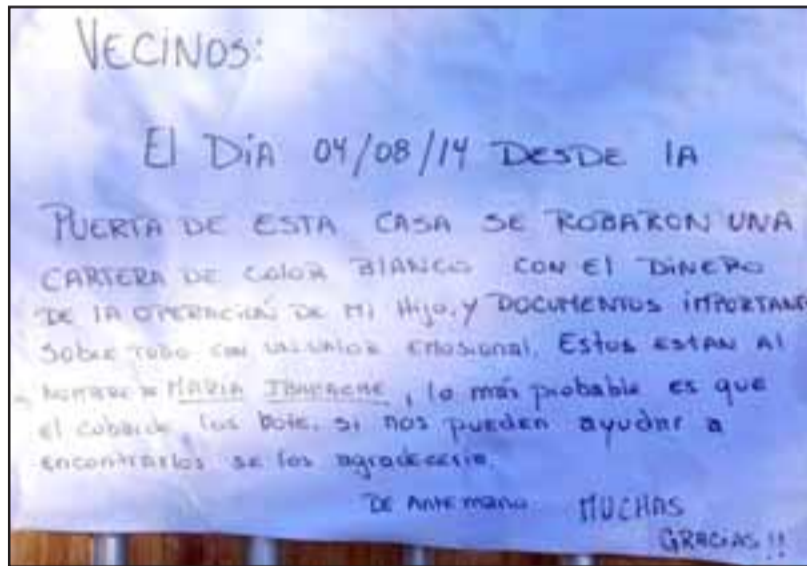 VECINOS:
El DÍA 04/08/14 DESDE lA
PUERTA DE ESTA CASA SE ROBARON UNA
CARTERA DE COLOR BlANCO CON El DINERO
DE lA OPERACIÓN DE MI HIJO, Y DOCUMENTOS IMPORTAN
SOBRE TODO CON UN VALOR EMOSIONAl. ESTOS ESTAN Al
NOMBRE DE MARIA, lo más probable es que
el cobarde, los bote, si nos pueden ayudar a
encontrarlos se los agradeceria.
DE ANTEMANO MUCHAS
GRACIAS!!